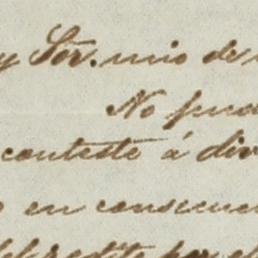 y Sor. mio de
No pud
contesto á div
en consecuen